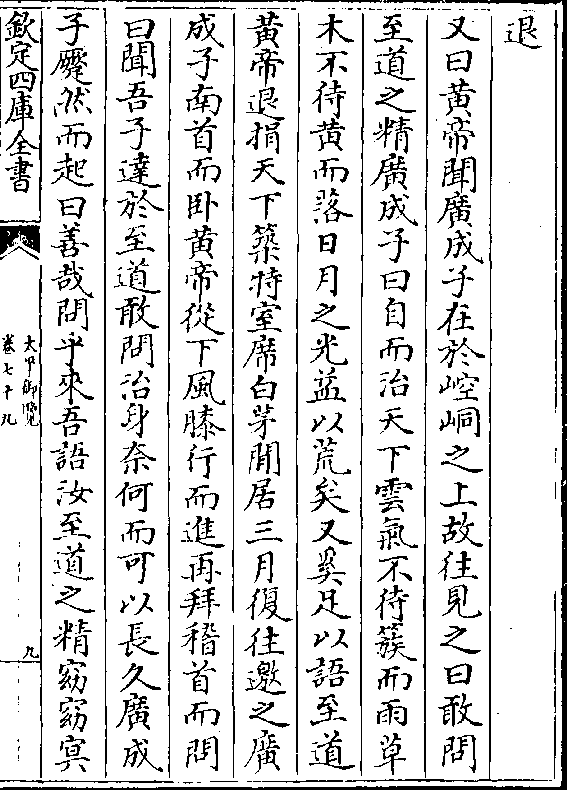 退
又曰黄帝聞廣成子在於崆峒之上故往見之曰敢問
至道之精廣成子曰自而治天下雲氣不待簇而雨草
木不待黄而落日月之光益以荒矣又奚足以語至道
黄帝退捐天下築特室席白茅閒居三月復往邀之廣
成子南首而卧黄帝從下風膝行而進再拜稽首而問
曰聞吾子達於至道敢問治身奈何而可以長久廣成
子蹷然而起曰善哉問乎來吾語汝至道之精窈窈冥
欽定四庫全書
太平御覽
卷七十九
九